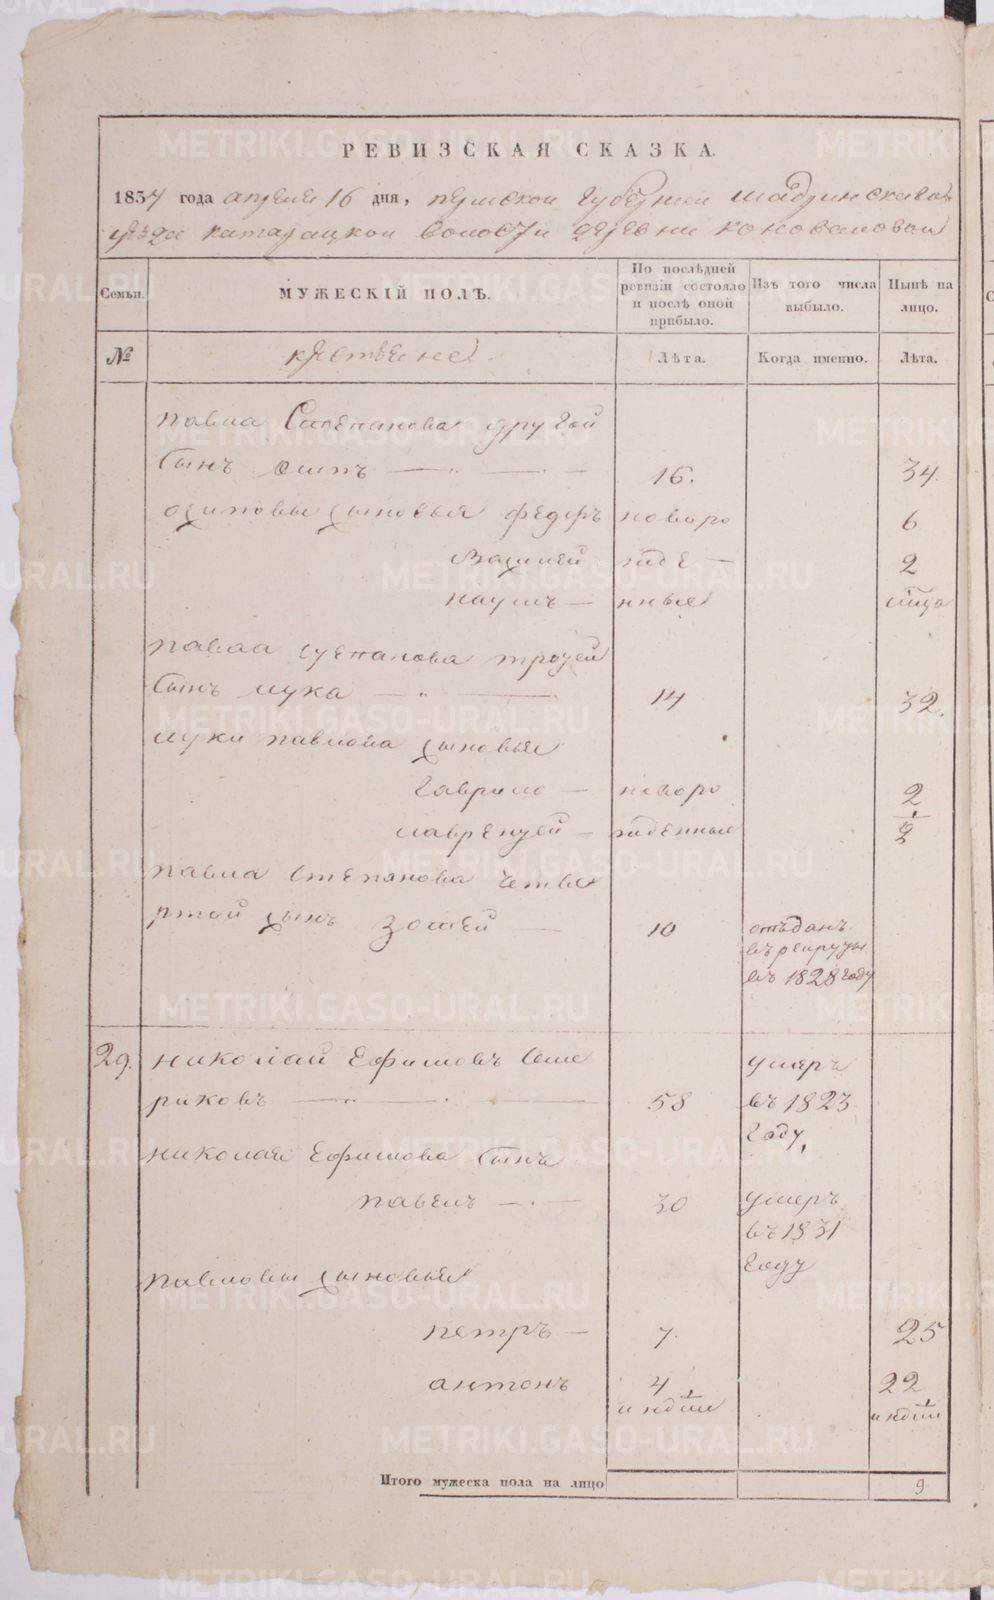 РЕВИЗСКАЯ СКАЗКА.
1834 года апреля 16 дня, пермской губернии шадринскаво
уезда катарацкой волости деревни коноваловой
Семьи. МУЖЕСКІЙ ПОЛЪ. По послѣдней ревизіи состояло и послѣ оной прибыло. Изъ того числа выбыло. Нынѣ на лицо.
№ крестьяне. Лѣта. Когда именно. Лѣта.
павла Степанова другой
сынъ осипъ 16. 34.
осиповы сыновья федоръ новоро 6
василей жде 2
наумъ нные
павла степанова третей
сынъ лука 14 32.
луки павлова сыновья
гаврило новоро 2
лаврентей жденные 2
павла степанова четве
ртой сынъ зотей 10 отъданъ
въ рекруты
въ 1828 году
29. николай Ефимовъ умеръ
риковъ 58 въ 1823
году,
николая Ефимова сынъ
павелъ 30 умеръ
въ 1831
году
павловы сыновья
петръ 7. 25
антонъ 4 22
Итого мужеска пола на лицо 9
METRIKI.GASO-URAL.RU